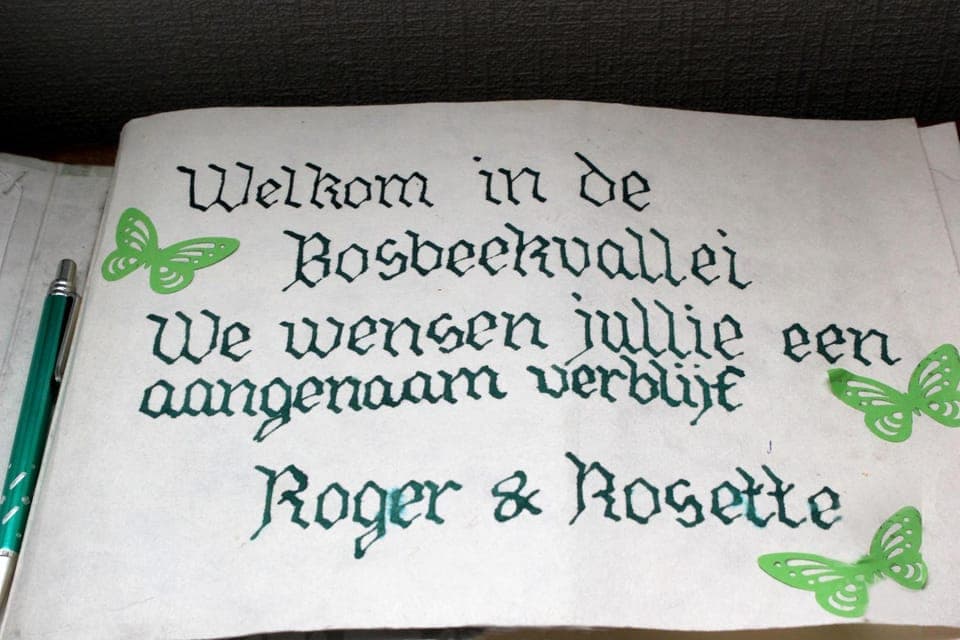 Welkom in de
Bosbeekvallei
We wensen jullie een
aangenaam verblijf
Roger & Rosette